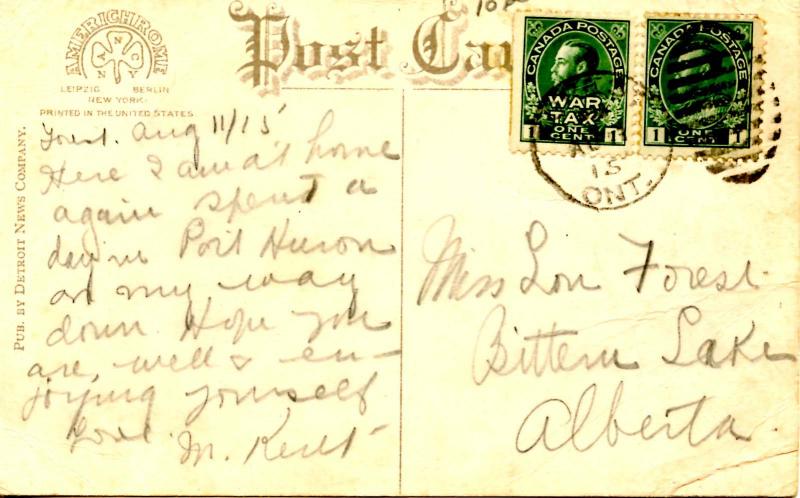 AMERICHROME
NANCY
LEIPZIG BERLIN
NEW YORK
PRINTED IN THE UNITED STATES
PUB. BY DETROIT NEWS COMPANY.
Post Car
CANADA POSTAGE
WAR
TAX
1 ONE CENT 1
CANADA POSTAGE
1 ONE CENT 1
15
ONT.
Aug 11/15
Here I am at home
again spent a
day in Port Huron
on my way
down Hope you
are, well & en-
joying yourself
Love
M. Kent
Miss Lou Forest
Bittern Lake
Alberta.